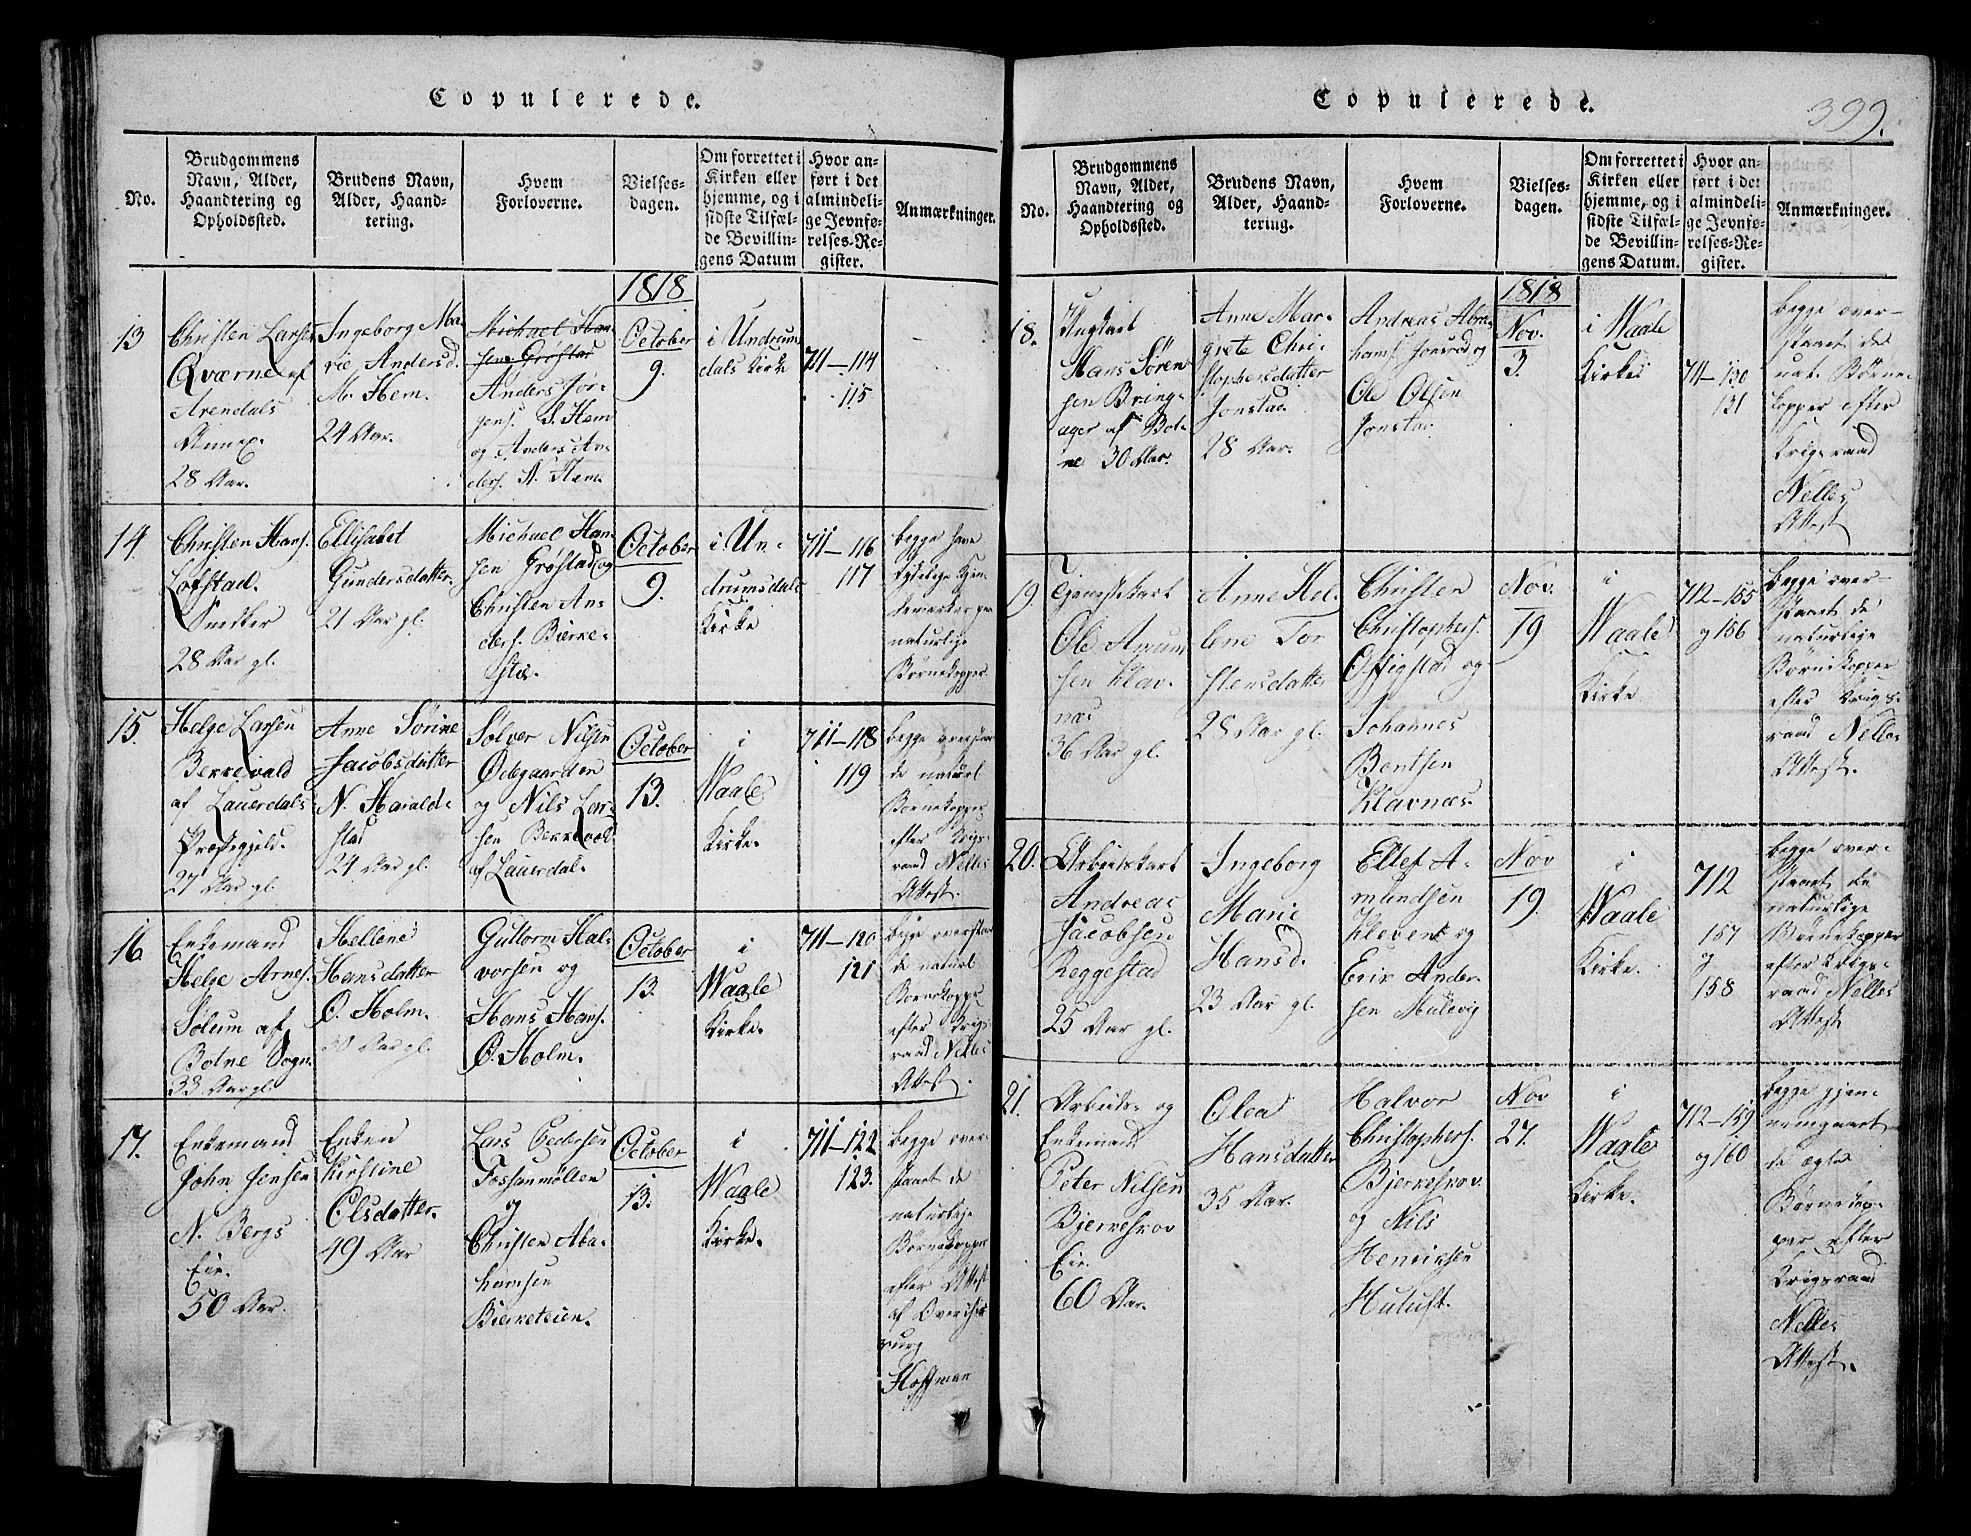 Copulerede.
No.
Brudgommens
Navn, Alder,
Haandtering og
Opholdssted.
Brudens Navn,
Alder, Haand-
tering.
Hvem
Forloverne.
Vielses-
dagen.
Om forrettet i
Kirken eller
hjemme, og i
sidste Tilfæl-
de Bevillin-
gens Datum
Hvor an-
ført i det
almindeli-
ge Jevnfø-
relses-Re-
gister.
Anmærkninger.
13
Christen Larsen
Qværne af
Arendals
Annex.
28 Aar.
Ingeborg Ma-
rie Andersd.
M. Hem.
24 Aar.
Michael Han-
sen Grøstad
Anders Jør-
gens. S. Hem
og Anders An-
ders. N. Hem.
1818
October
9.
i Undrum
dals Kirke
711-114
115
14.
Christen Hans.
Lofstad.
Snedker
28 Aar gl.
Ellisabet
Gundersdatter.
21 Aar gl.
Michael Han-
sen Grøstad og
Christen An-
ders. Bierke-
stø.
October
9.
i Un-
drumsdals
Kirke
711-116
117
begge have
tydelige Kjen-
demerker paa
naturlige
Børnekopper
15.
Helge Larsen
Berrevald
af Lauerdals
Præstegjeld.
27 Aar gl.
Anne Sørine
Jacobsdatter
N. Harald-
stad
24 Aar gl.
Solver Nilsen
Ødegaarden
og Nils Lar-
sen Berrevald
af Lauerdal.
October
13.
i
Waale
Kirke.
711-118
119
begge overstaa
de naturl
Børnekopper
efter Krigs-
raad Nelles
Attest.
16
Enkemand
Helge Arnes.
Solum af
Botne Sogn.
33 Aar gl.
Hellene
Hansdatter
Ø. Holm.
30 Aar gl.
Guttorm Hal-
vorsen og
Hans Hans.
Ø. Holm.
October
13.
i
Waale
Kirke.
711-120
121
begge overstaa
de naturl
Børnekopper
efter Krigs
raad Nelles
Attest.
17.
Enkemand
John Jensen
N. Bergs
Eie.
50 Aar.
Enken
Kirstine
Olsdatter.
49 Aar
Lars Pedersen
Fossanmøllen
og
Christen Aba-
hamsen
Bierketeien.
October
13.
i
Waale
Kirke.
711-122
123.
begge over-
staaet de
naturlige
Børnekopper
efter Attest
af Overchir
rurg
Hoffman
Copulerede.
399.
No.
Brudgommens
Navn, Alder,
Haandtering og
Opholdssted.
Brudens Navn,
Alder, Haand-
tering.
Hvem
Forloverne.
Vielses-
dagen.
Om forrettet i
Kirken eller
hjemme, og i
sidste Tilfæl-
de Bevillin-
gens Datum.
Hvor an-
ført i det
almindeli-
ge Jevnfø-
relses-Re-
gister.
Anmærkninger.
18.
Ungkarl
Hans Søren
sen Bring-
ager af Bot-
ne 30 Aar.
Anne Mar-
grete Chri-
stophersdatter
Jonstad
28 Aar.
Andreas Abra-
hams. Jonsrød og
Ole Olsen
Jonstad.
1818
Nov.
3.
i Waale
Kirke
711-130
131
begge over-
staaet de
nat. Børne-
kopper efter
Krigsraad
Nelles
Attest
19.
Tjenestekarl
Ole Amun
sen Klav-
næs
36 Aar gl.
Anne Hel-
lene Tor
stensdatter
28 Aar gl.
Christen
Christophers.
Offigstad og
Johannes
Bentsen
Klavnæs.
Nov.
19
i
Waale
Kirke
712-155
og 156
begge over-
staaet de
naturlige
Børnekopper
efter Krigs-
raad Nelles
Attest.
20.
Arbeidskarl
Andreas
Jacobsen
Reggestad
25 Aar gl.
Ingeborg
Marie
Hansd.
23 Aar gl.
Ellef A-
mundsen
Kleven og
Erik Ander-
sen Mulevig
Nov
19.
i
Waale
Kirke.
712
157
og
158
begge over-
staaet de
naturlige
Børnekopper
efter Krigs-
raad Nelles
Attest
21.
Arbeids- og
Enkemand
Peter Nilsen
Bjerreskov
Eie.
60 Aar.
Olea
Hansdatter
35 Aar.
Halvor
Christophers.
Bjerreskov.
og Nils
Henriksen
Hutuft.
Nov
27.
i
Waale
Kirke.
712-159
og 160
begge gjen-
nemgaaet
de ægte
Børnekop-
per efter
Krigsraad
Nelles
Attest.